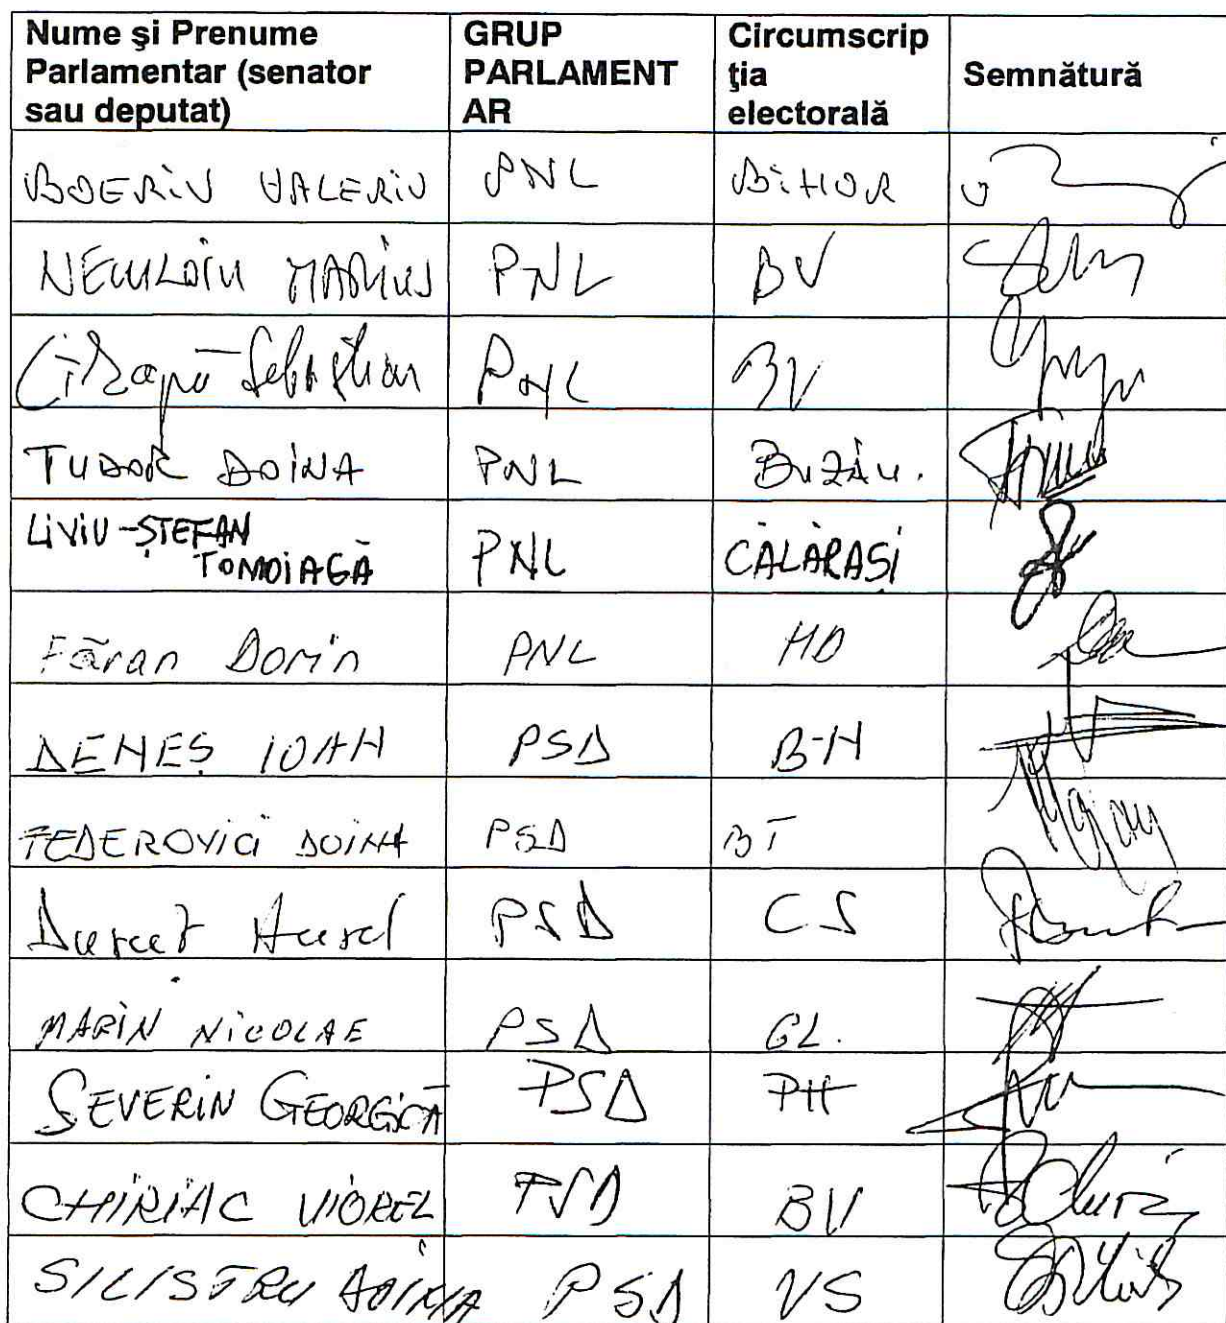 Nume şi Prenume
Parlamentar (senator
sau deputat)
GRUP
PARLAMENT
AR
Circumscrip
ţia
electorală
Semnătură
BOERIU VALERIU PNL BIHOR
NECULOIU MARIUS PNL BV
Cîţapu Sebastian PNL BV
TUDOR DOINA PNL BUZĂU.
LIVIU-ŞTEFAN
TOMOIAGĂ PNL CĂLĂRAŞI
Făran Dorin PNL HD
DENEŞ IOAN PSD B-N
FEDEROVICI DOINA PSD BT
Aurel PSD CS
MARIN NICOLAE PSD GL.
SEVERIN GEORGICĂ PSD PH
CHIRIAC VIOREL PSD BV
SILISTRU DOINA PSD VS